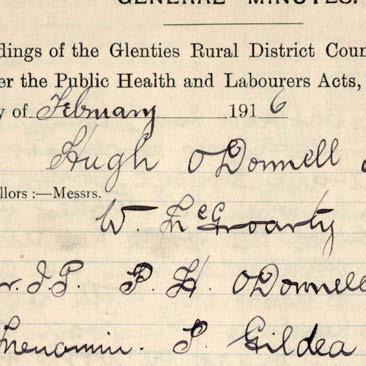 GENERAL MINUTES.
dings of the Glenties Rural District Coun
er the Public Health and Labourers Acts,
y of February 1916
Hugh O'Donnell
llors :—Messrs.
W. McGroarty
r. J.P. P. H. O'Donnell
Gildea